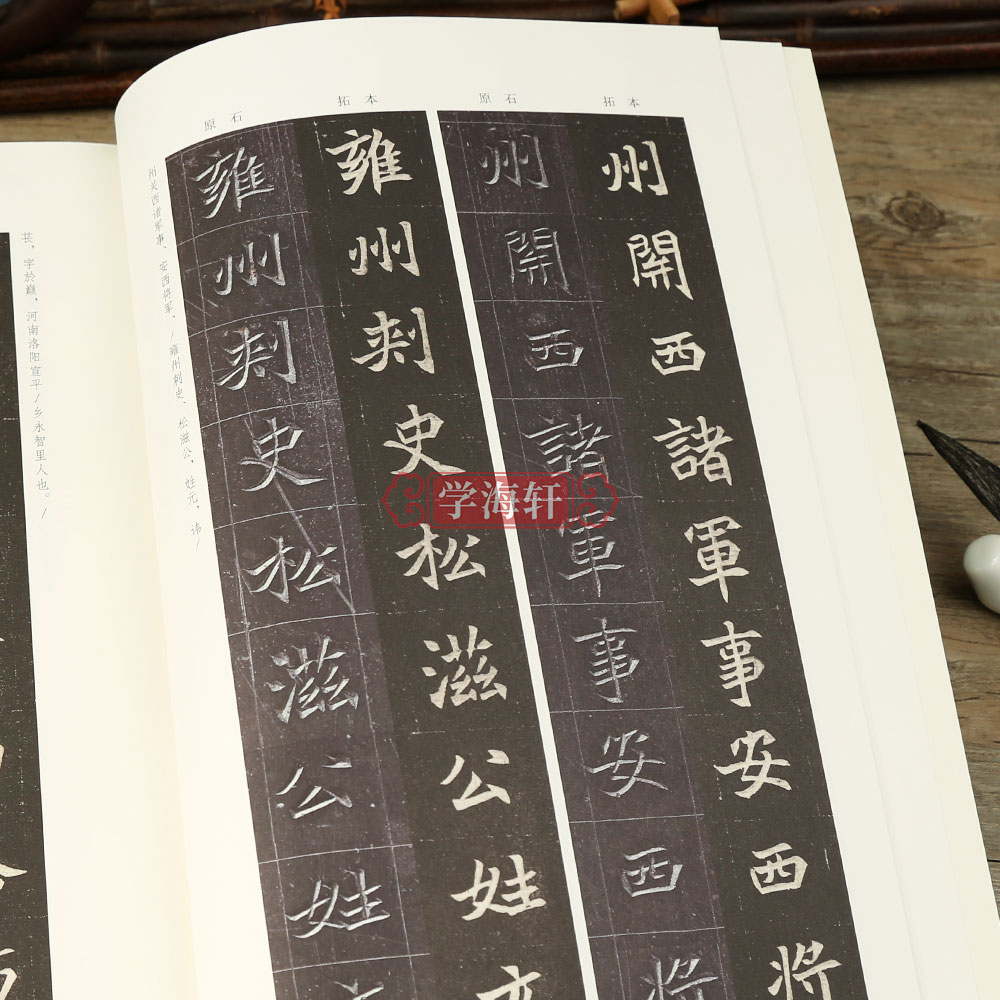 拓本
州開西諸軍事安西將
原石
州開西諸軍事安西將
拓本
雍州刾史松滋公姓
原石
雍州刾史松滋公姓
州关西诸军事、安西将军、/雍州刺史、松滋公，姓元，讳/
苌，字於巅，河南洛阳宣平/乡永智里人也。/
学海轩